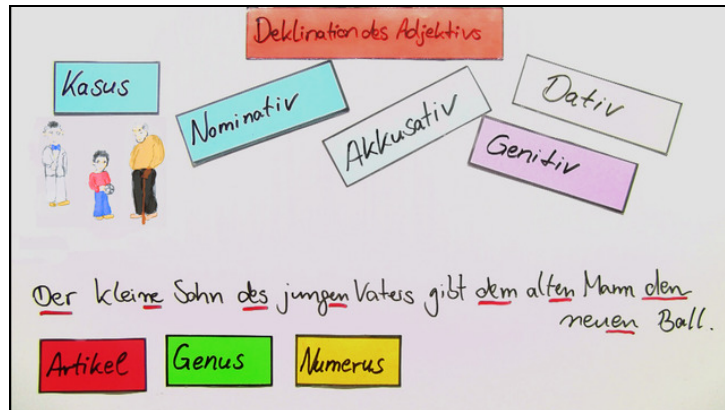 Deklination des Adjektivs
Kasus
Nominativ
Akkusativ
Dativ
Genitiv
Der kleine Sohn des jungen Vaters gibt dem alten Mann den
neuen Ball.
Artikel
Genus
Numerus